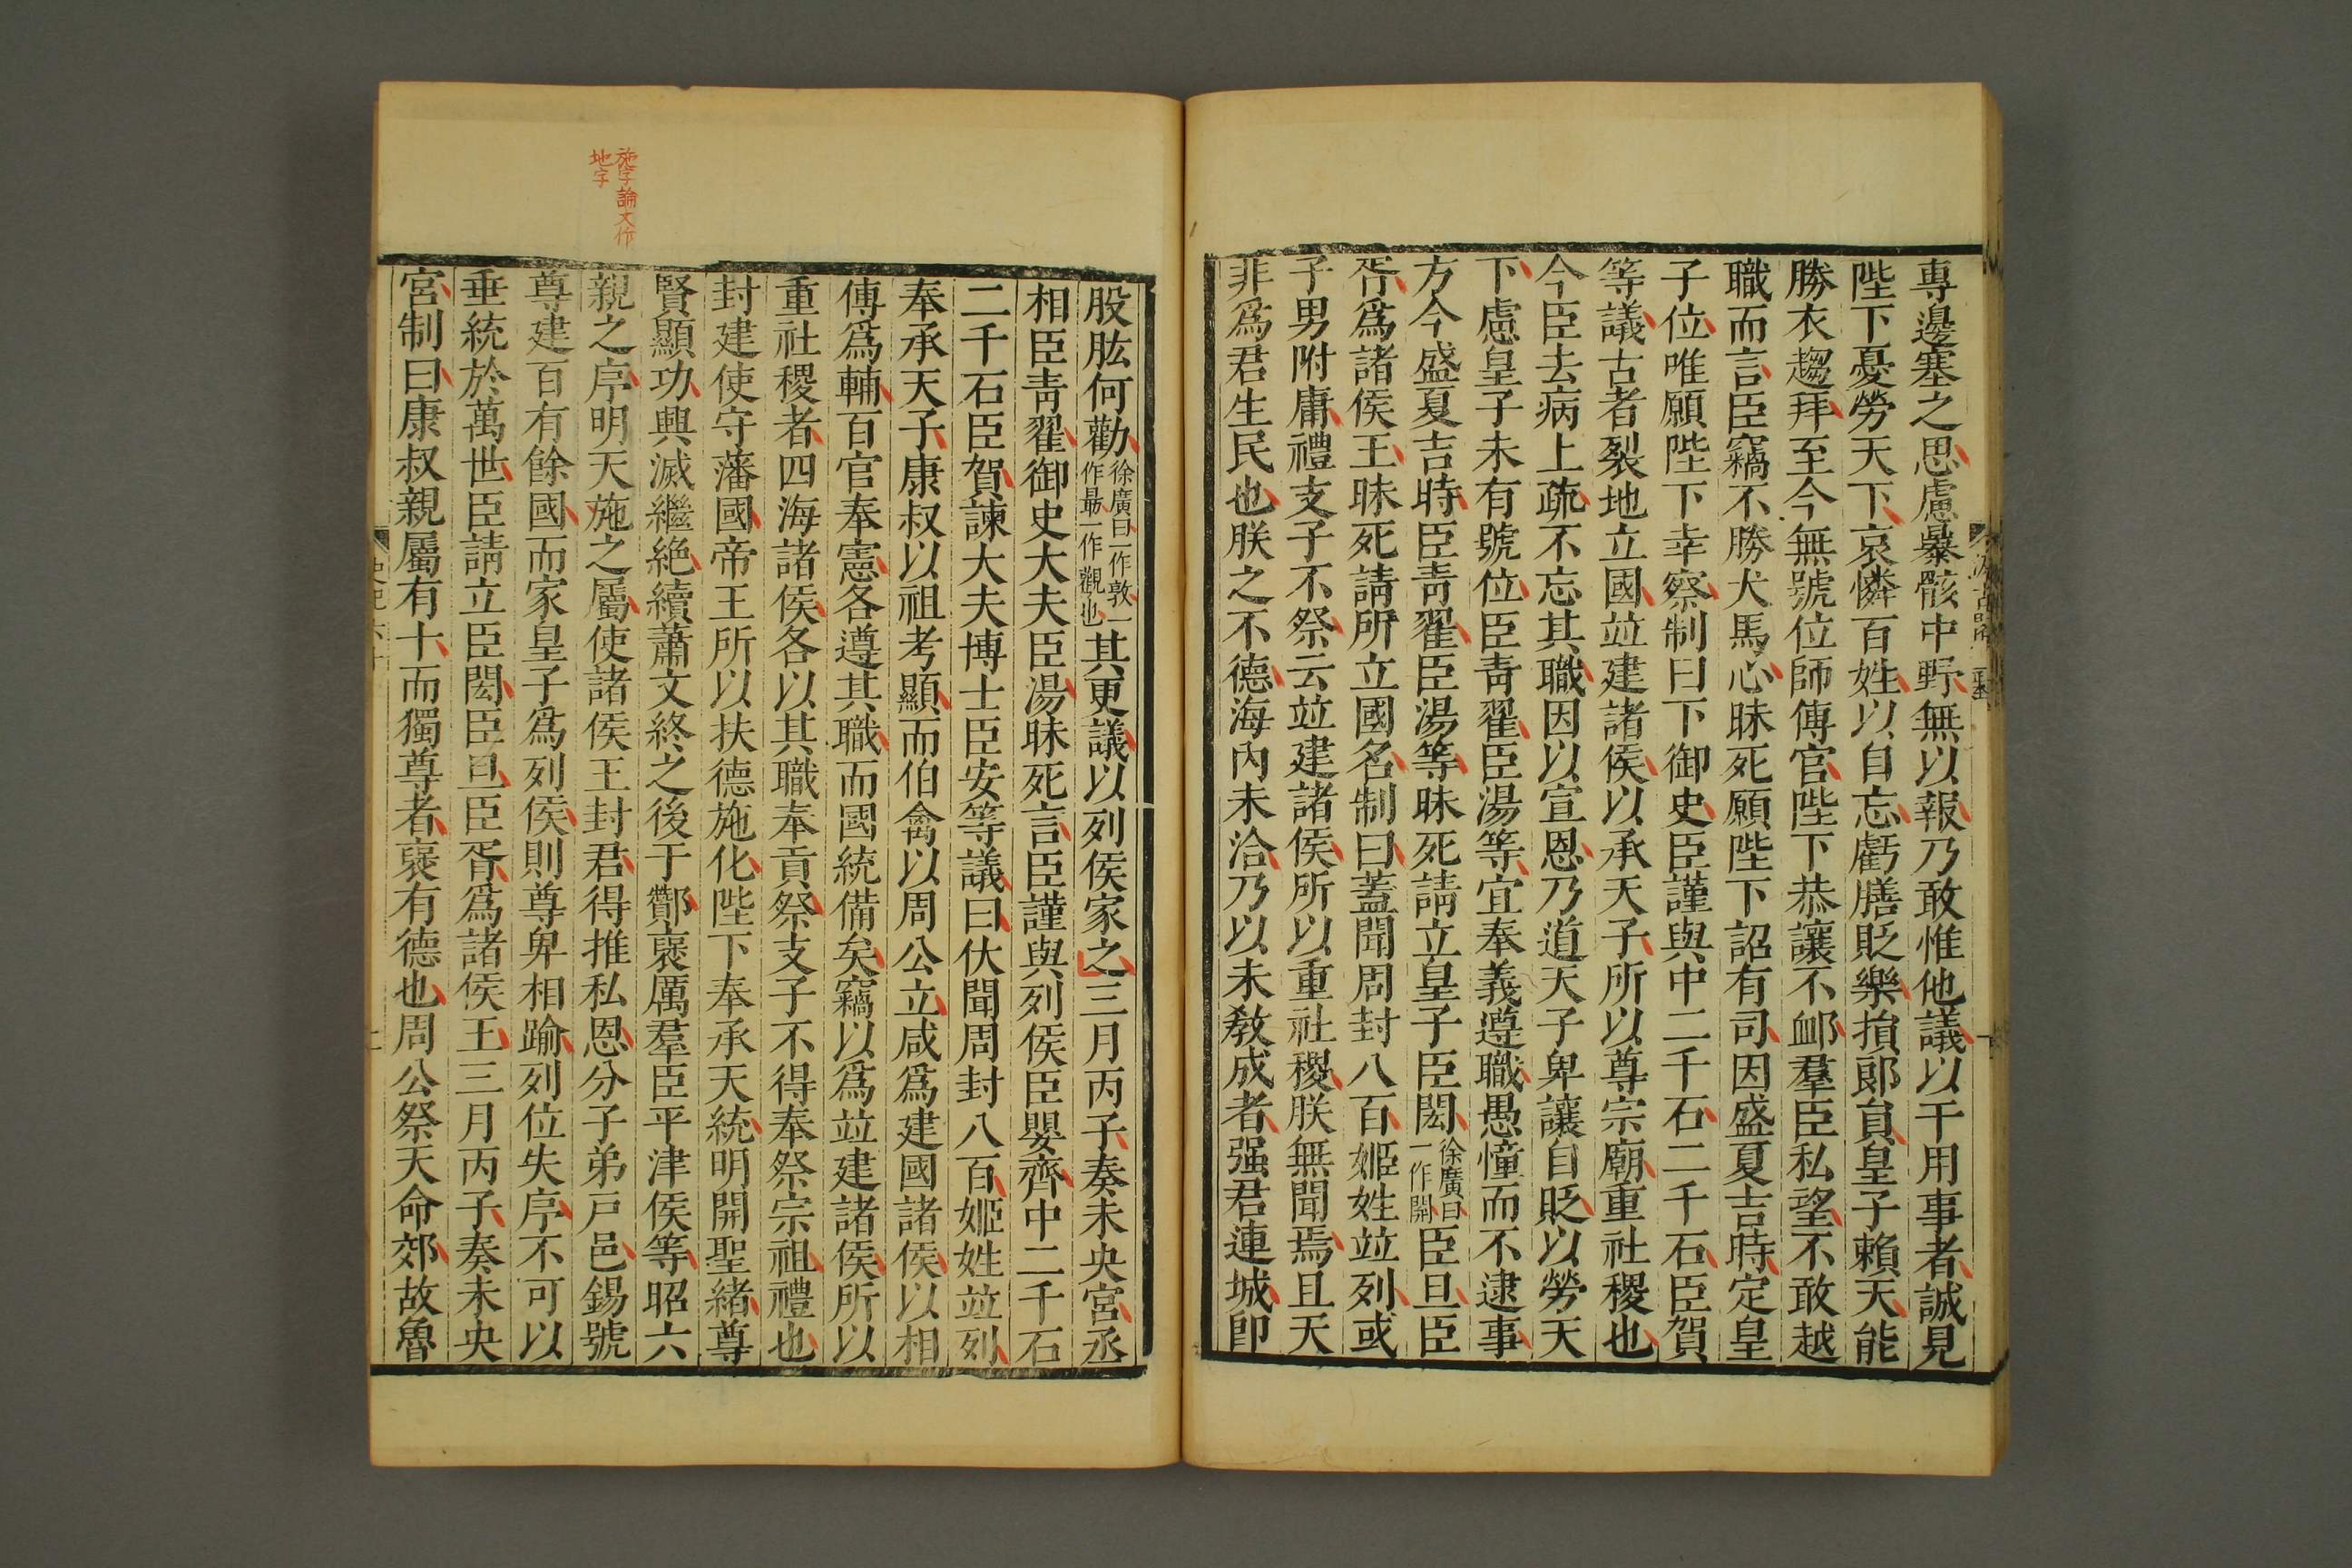 專邊塞之思慮暴骸中野無以報乃敢惟他議以干用事者誠見
陛下憂勞天下哀憐百姓以自忘虧膳貶樂損郎員皇子賴天能
勝衣趨拜至今無號位師傅官陛下恭讓不卹羣臣私望不敢越
職而言臣竊不勝犬馬心昧死願陛下詔有司因盛夏吉時定皇
子位唯願陛下幸察制曰下御史臣謹與中二千石二千石臣賀
等議古者裂地立國竝建諸侯以承天子所以尊宗廟重社稷也
今臣去病上疏不忘其職因以宣恩乃道天子卑讓自貶以勞天
下慮皇子未有號位臣青翟臣湯等宜奉義遵職愚憧而不逮事
方今盛夏吉時臣青翟臣湯等昧死請立皇子臣閎徐廣曰一作開臣旦臣
胥為諸侯王昧死請所立國名制曰蓋聞周封八百姬姓竝列或
子男附庸禮支子不祭云竝建諸侯所以重社稷朕無聞焉且天
非為君生民也朕之不德海內未洽乃以未教成者强君連城卽
股肱何勸徐廣曰一作敦一作最一作觀也其更議以列侯家之三月丙子奏未央宮丞
相臣青翟御史大夫臣湯昧死言臣謹與列侯臣嬰齊中二千石
二千石臣賀諫大夫博士臣安等議曰伏聞周封八百姬姓竝列
奉承天子康叔以祖考顯而伯禽以周公立咸為建國諸侯以相
傅為輔百官奉憲各遵其職而國統備矣竊以為竝建諸侯所以
重社稷者四海諸侯各以其職奉貢祭支子不得奉祭宗祖禮也
封建使守藩國帝王所以扶德施化陛下奉承天統明開聖緒尊
賢顯功興滅繼絕續蕭文終之後于酇褒厲羣臣平津侯等昭六
親之序明天施之屬使諸侯王封君得推私恩分子弟戶邑錫號
尊建百有餘國而家皇子為列侯則尊卑相踰列位失序不可以
垂統於萬世臣請立臣閎臣旦臣胥為諸侯王三月丙子奏未央
宮制曰康叔親屬有十而獨尊者褒有德也周公祭天命郊故魯
施字論文作
地字